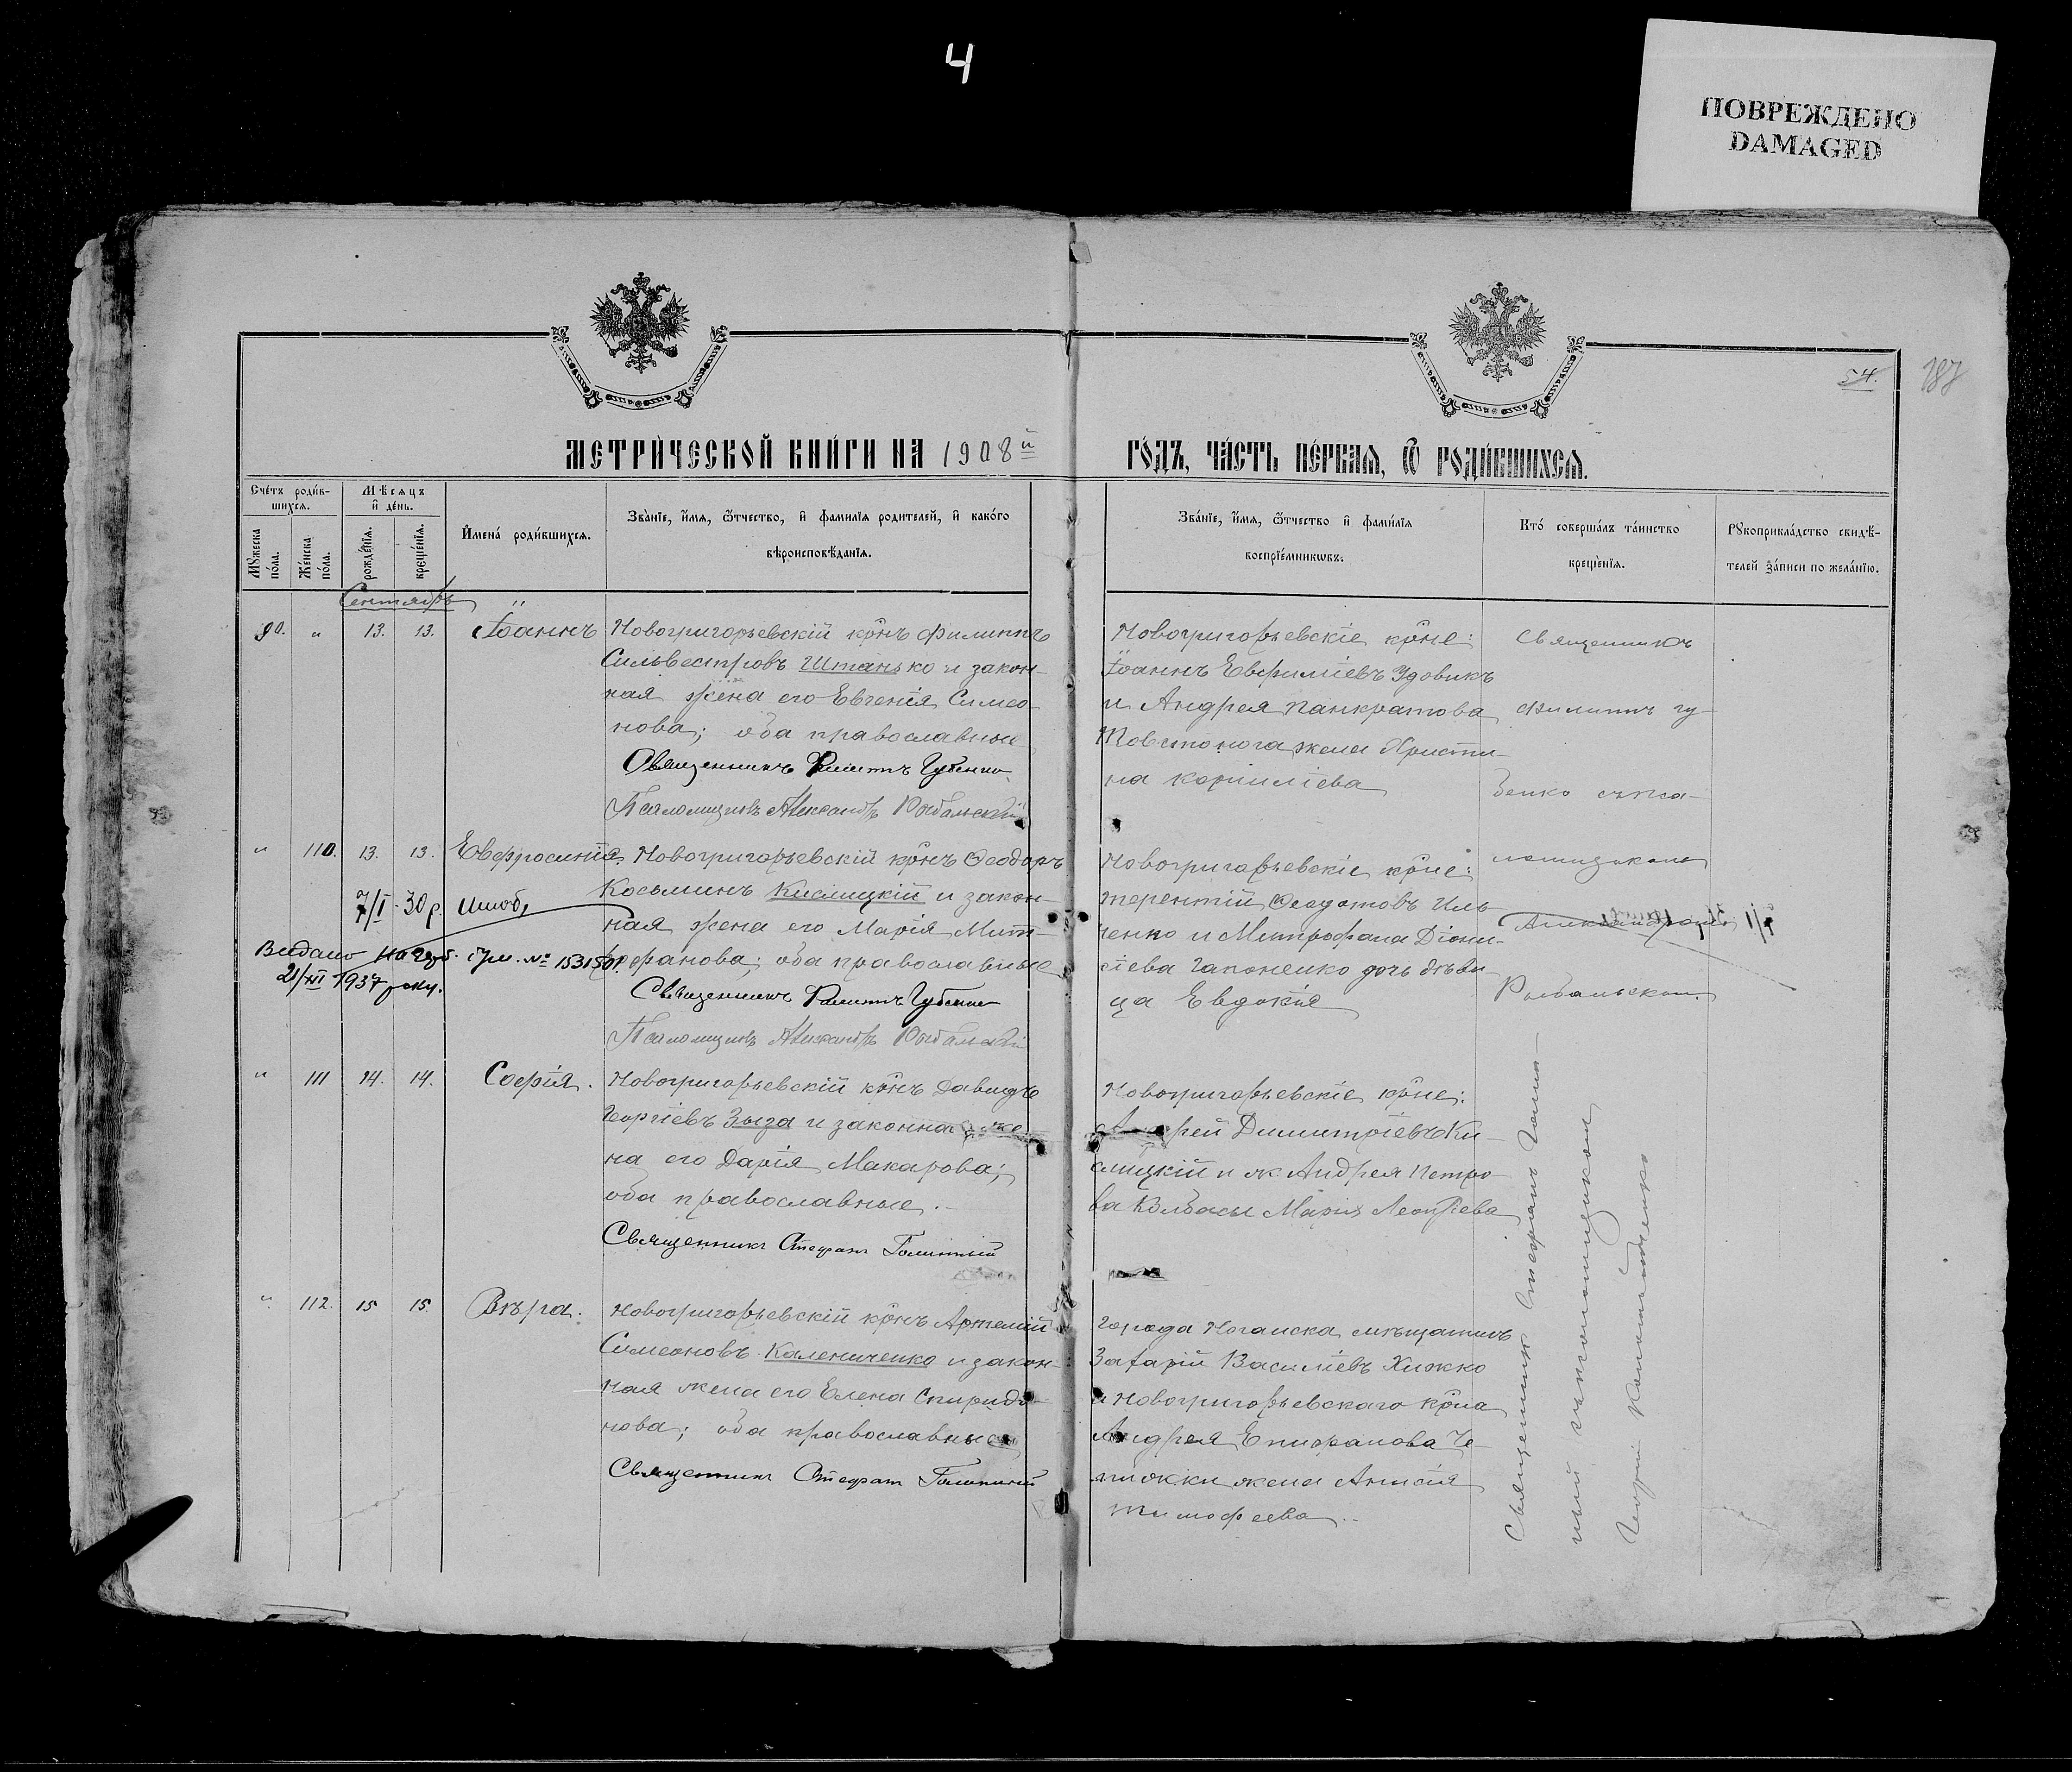 4
ПОВРЕЖДЕНО
DAMAGED
54.
187
МЕТРИ́ЧЕСКОЙ КНИ́ГИ НА 1908й
ГО́ДЪ, ЧА́СТЬ ПЕ́РВАЯ, Ѿ РОДИ́ВШИХСЯ.
Сче́тъ роди́в-
шихся.
Мꙋжеска по́ла.
Же́нска по́ла.
Мѣсяцъ
и де́нь.
рожде́нїя.
креще́нїя.
И҆мена̀ роди́вшихся.
Зва́нїе, и҆́мя, ѻ҆́тчество, и҆ фамилїя родителей, и҆ како́го
вѣроисповѣ́данїя.
Зва́нїе, и҆́мя, ѻ҆́тчество и҆ фами́лїя
воспрїе́мникѡвъ.
Кто̀ соверша́лъ та́инство
креще́нїя.
Рꙋкоприкла́дство свидѣ́-
телей за́писи по жела́нїю.
Сентябрь
90. " 13. 13. Іоаннъ
Новогригорьевскій кр̃нъ Филиппъ
Сильвестровъ Штанько и закон-
ная жена его Евгенія Симео
нова; оба православные
Священникъ Филиппъ Губенко
Псаломщикъ Александръ Рыбальскій
Новогригорьевскіе кр̃не:
Іоаннъ Евфиміевъ Удовикъ
и Андрея Панкратова
Товстонога жена Христи-
на Корниліева
Священникъ
Филиппъ Гу-
бенко съ пса-
ломщикомъ
Александромъ
Рыбальским.
" 110. 13. 13. Евфросинія.
Новогригорьевскій кр̃нъ Ѳеодоръ
Косьминъ Кислицкій и закон-
ная жена его Марія Мит-
рофанова; оба православные
Священникъ Филиппъ Губенко
Псаломщикъ Александръ Рыбальскій
7/I - 30 р.
Видано
№ 153150
21/XII 1937 року.
Новогригорьевскіе кр̃не:
Терентій Ѳеодотовъ Иль-
ченко и Митрофана Діони-
сіева Гапоненко дочь дѣви-
ца Евдокія
" 111 14. 14. Софія.
Новогригорьевскій кр̃нъ Давидъ
Георгіевъ Зыза и законная же
на его Дарія Макарова;
оба православные.
Священникъ Стефанъ
Новогригорьевскіе кр̃не:
Андрей Димитріевъ Ки-
слицкій и ж Андрея Петро-
ва Колбасы Марія Леонтіева
Священник Стефанъ
ный съ псаломщиком
Георгій
" 112. 15 15. Вѣра.
Новогригорьевскій кр̃нъ Артемій
Симеоновъ Калениченко и закон-
ная жена его Елена Спиридо-
нова; оба православные
Священникъ Стефанъ
Города Ногайска мѣщанинъ
Захарій Василіевъ Хижко
и Новогригорьевскаго кр̃на
Андрея Епифанова Че-
жена Анисія
Тимофеева.